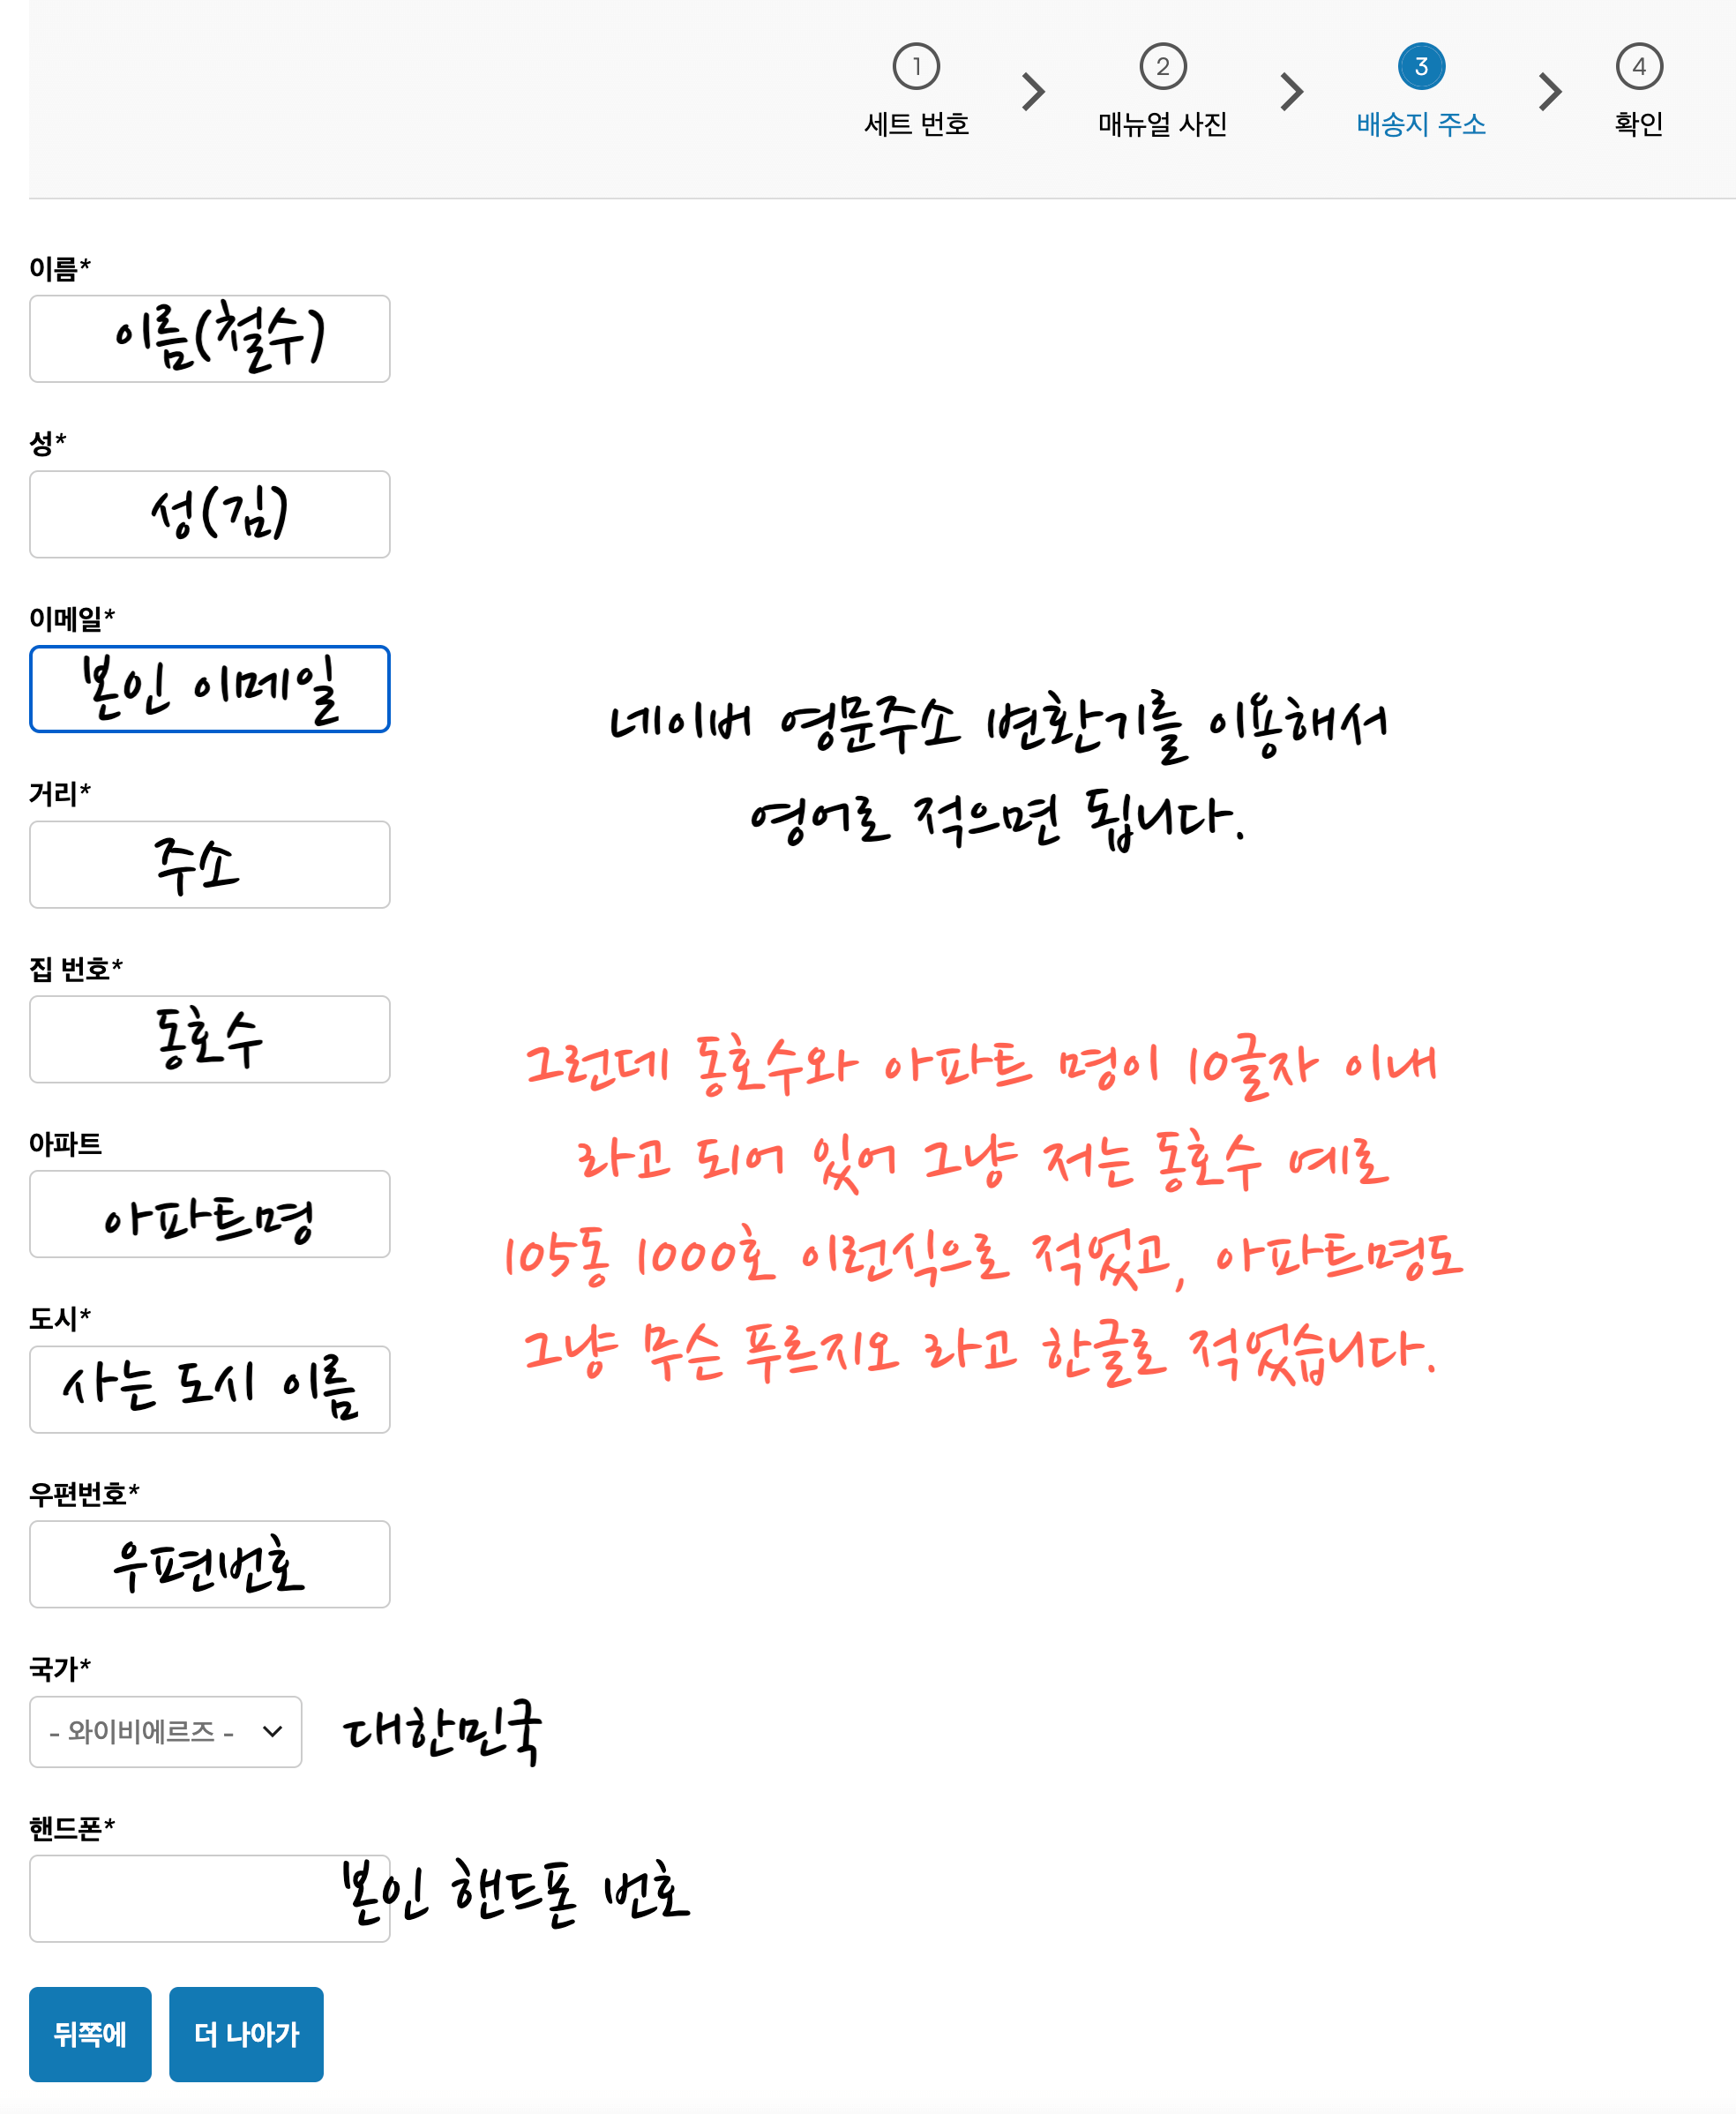 1
2
3
4
세트 번호
매뉴얼 사진
배송지 주소
확인
이름*
이름(철수)
성*
성(김)
이메일*
본인 이메일
네이버 영문주소 변환기를 이용해서
영어로 적으면 됩니다.
거리*
주소
집 번호*
동호수
그런데 동호수와 아파트 명이 10글자 이내
라고 되어 있어 그냥 저는 동호수 예로
105동 1000호 이런식으로 적었고, 아파트명도
그냥 무슨 푸르지오 라고 한글로 적었습니다.
아파트
아파트명
도시*
사는 도시 이름
우편번호*
우편번호
국가*
- 와이비에르즈 -
대한민국
핸드폰*
본인 핸드폰 번호
뒤쪽에
더 나아가